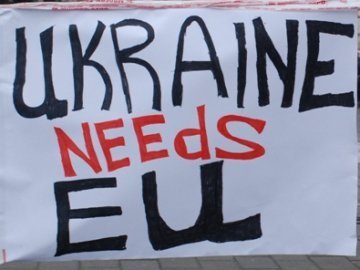 UKRAINE
NEEdS
EU